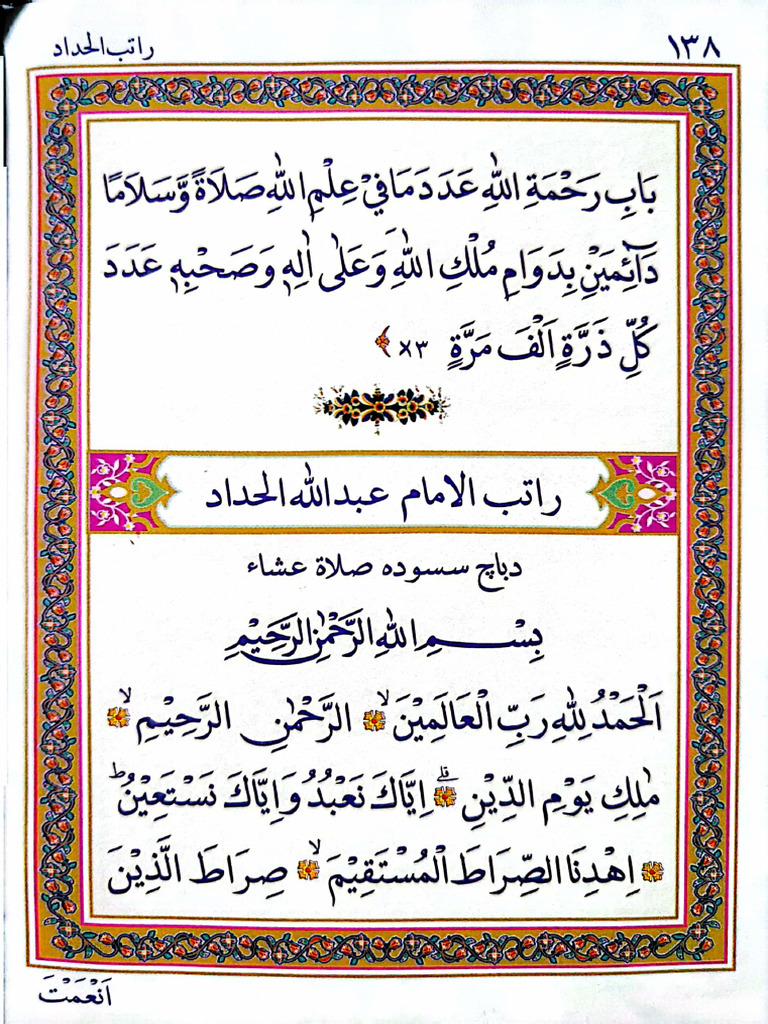 ١٣٨
راتب الحداد
بَابِ رَحْمَةِ اللّٰهِ عَدَدَ مَا فِيْ عِلْمِ اللّٰهِ صَلَاةً وَّسَلَامًا
دَآئِمَيْنِ بِدَوَامِ مُلْكِ اللّٰهِ وَعَلٰى اٰلِهٖ وَصَحْبِهٖ عَدَدَ
كُلِّ ذَرَّةٍ اَلْفَ مَرَّةٍ ×٣ ﴾
راتب الامام عبد الله الحداد
دباچ سسوده صلاة عشاء
بِسْمِ اللّٰهِ الرَّحْمٰنِ الرَّحِيْمِ
اَلْحَمْدُ لِلّٰهِ رَبِّ الْعَالَمِيْنَ ۙ الرَّحْمٰنِ الرَّحِيْمِ ۙ
مٰلِكِ يَوْمِ الدِّيْنِ ۗ اِيَّاكَ نَعْبُدُ وَاِيَّاكَ نَسْتَعِيْنُ ؕ
اِهْدِنَا الصِّرَاطَ الْمُسْتَقِيْمَ ۙ صِرَاطَ الَّذِيْنَ
اَنْعَمْتَ